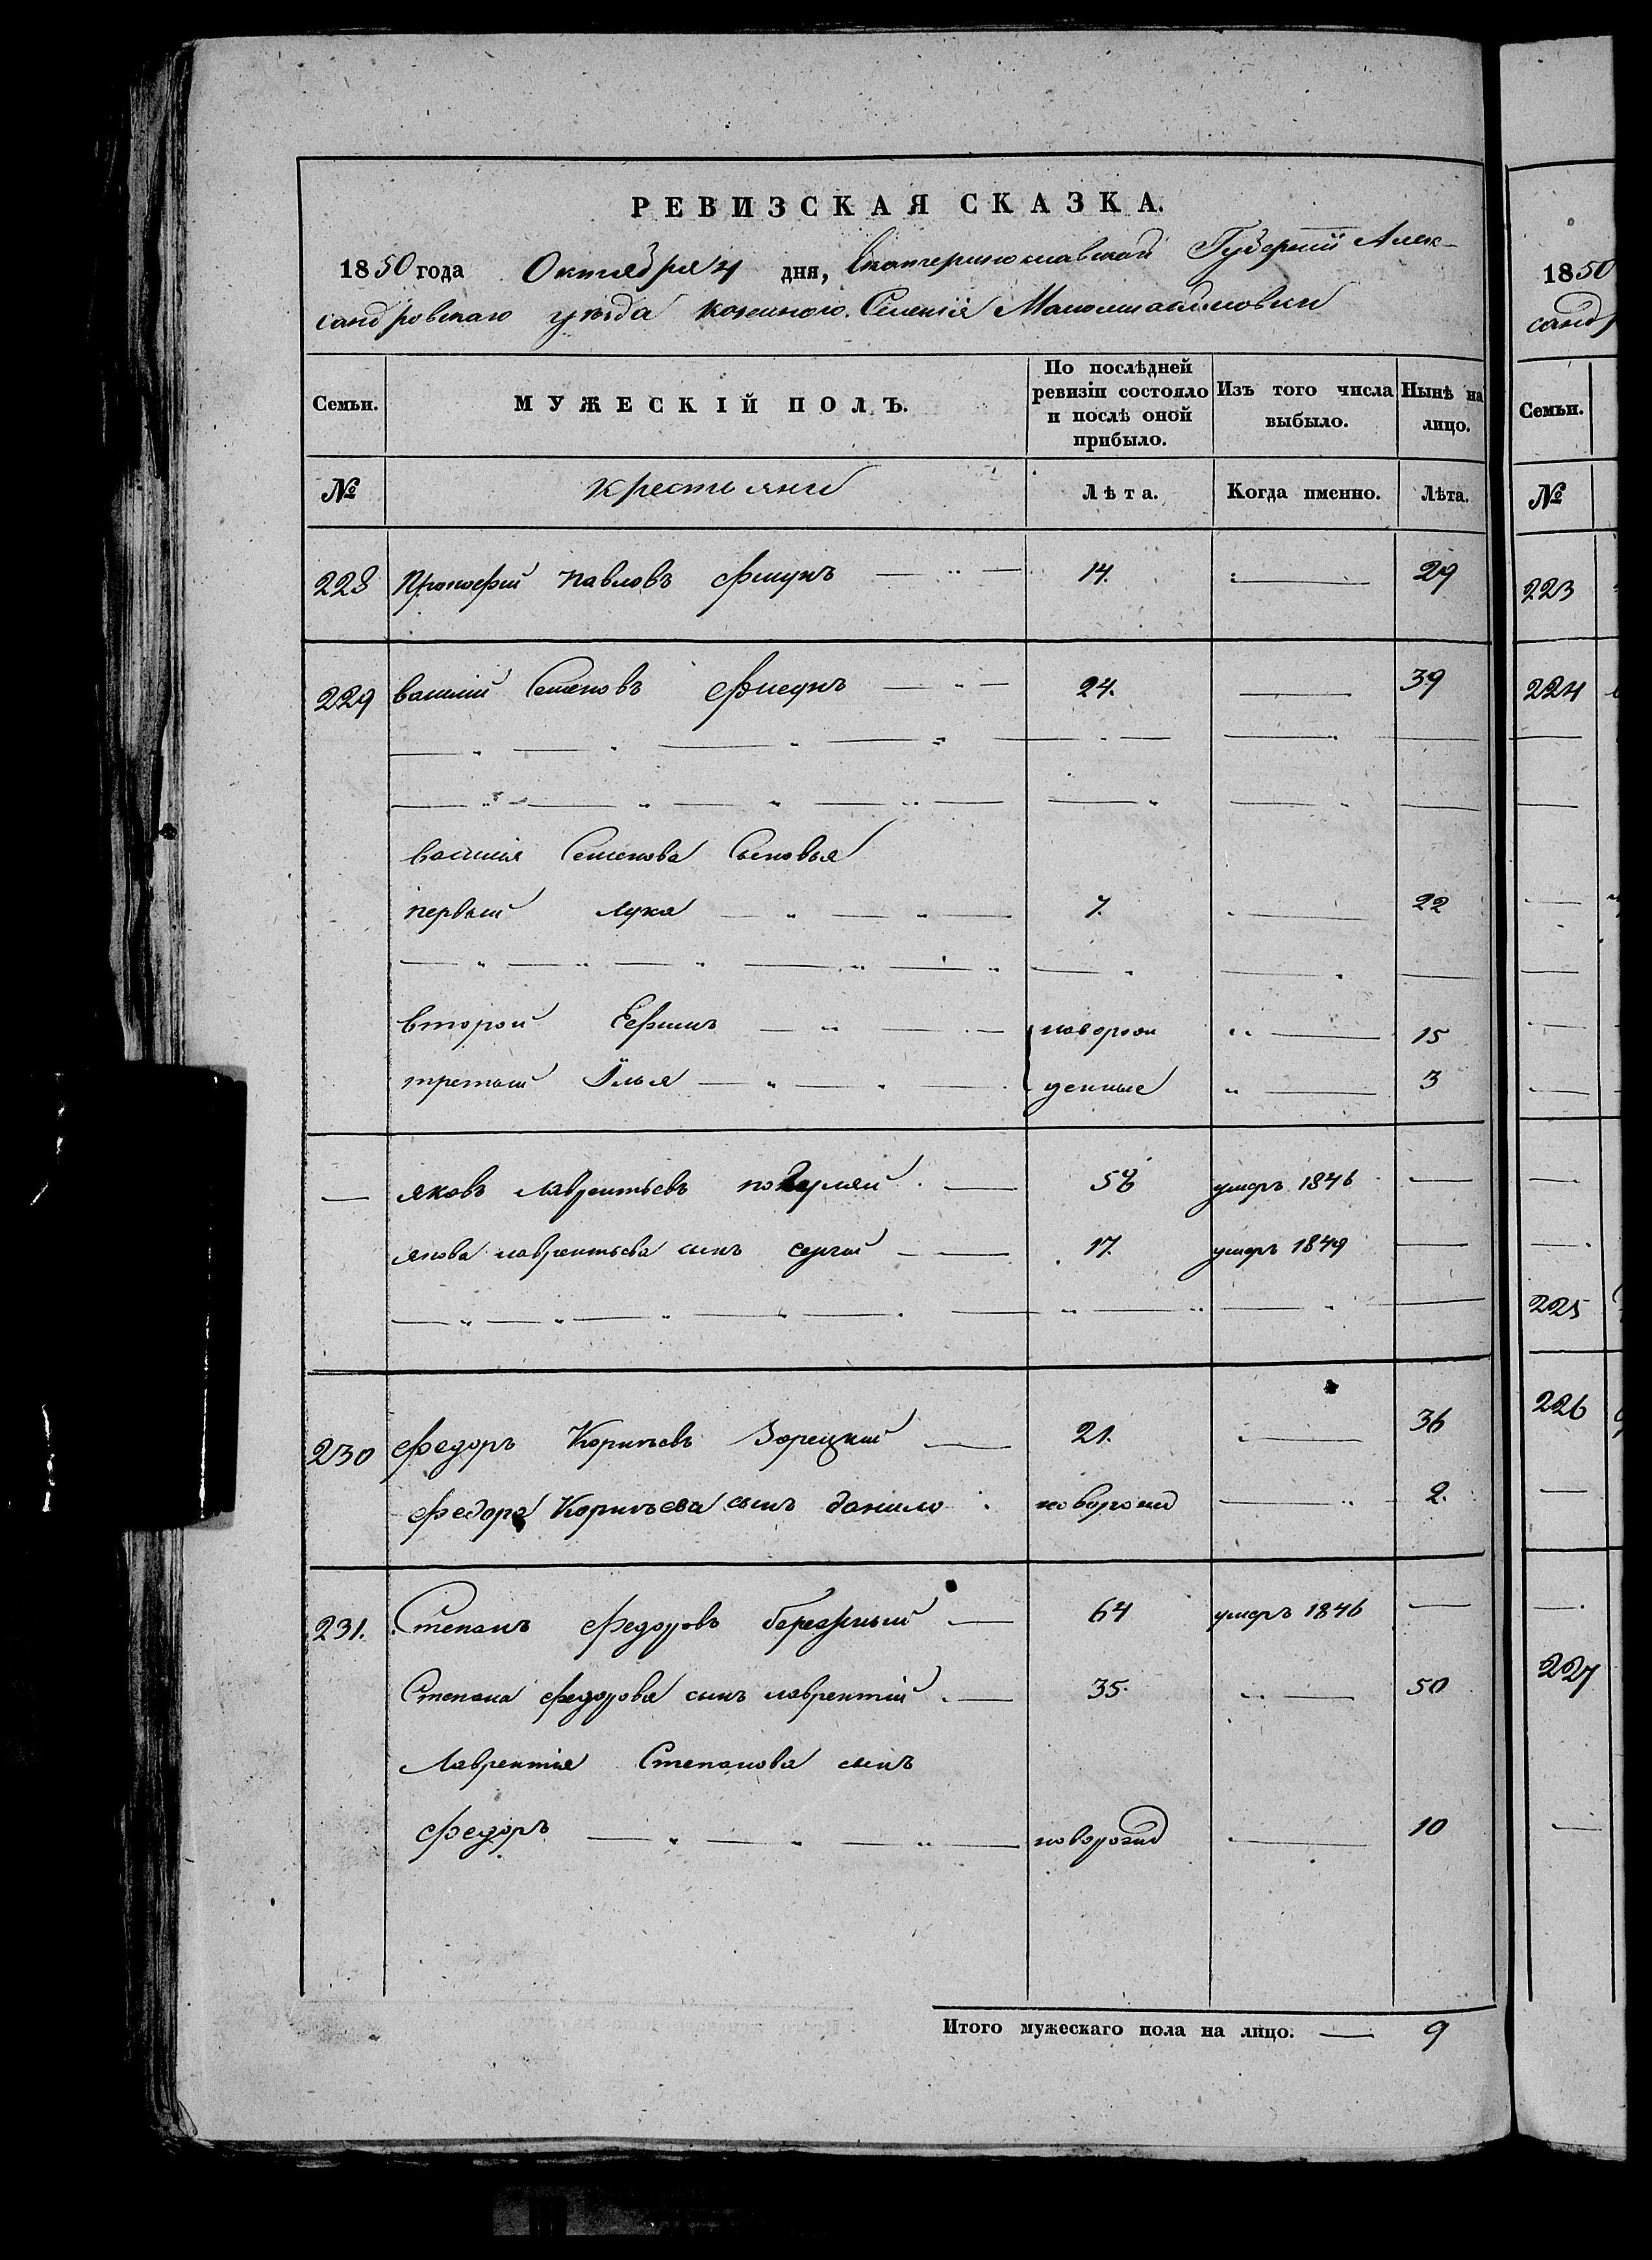 РЕВИЗСКАЯ СКАЗКА.
1850 года Октября 4 дня, Екатеринославской Губернии Алек-
сандровскаго уѣзда казенного Селенія
Семьи.
МУЖЕСКІЙ ПОЛЪ.
По послѣдней ревизіи состояло и послѣ оной прибыло.
Изъ того числа выбыло.
Нынѣ на лицо.
№ крестьяне Лѣта. Когда именно. Лѣта.
228 Прокофий Павловъ 14. — 29
229 василий Семеновъ 24. — 39
василия Семенова Сыновья
первый лука 7. — 22
второй Ефимъ новорож 15
третий Илья денные 3
— яковъ лаврентьевъ умеръ 1846 —
якова лаврентьева сынъ сергий 17. умеръ 1849 —
230 федоръ Корнѣевъ Зорецкий 21. — 36
федора Корнѣева сынъ данило новорожд — 2.
231. Степанъ федоровъ бережный 64 умеръ 1846 —
Степана федорова сынъ лаврентий 35. — 50
Лаврентия Степанова сынъ
федоръ новорожд — 10
Итого мужескаго пола на лицо. — 9
1850
санд
Семьи.
№
223
224
225
226
227